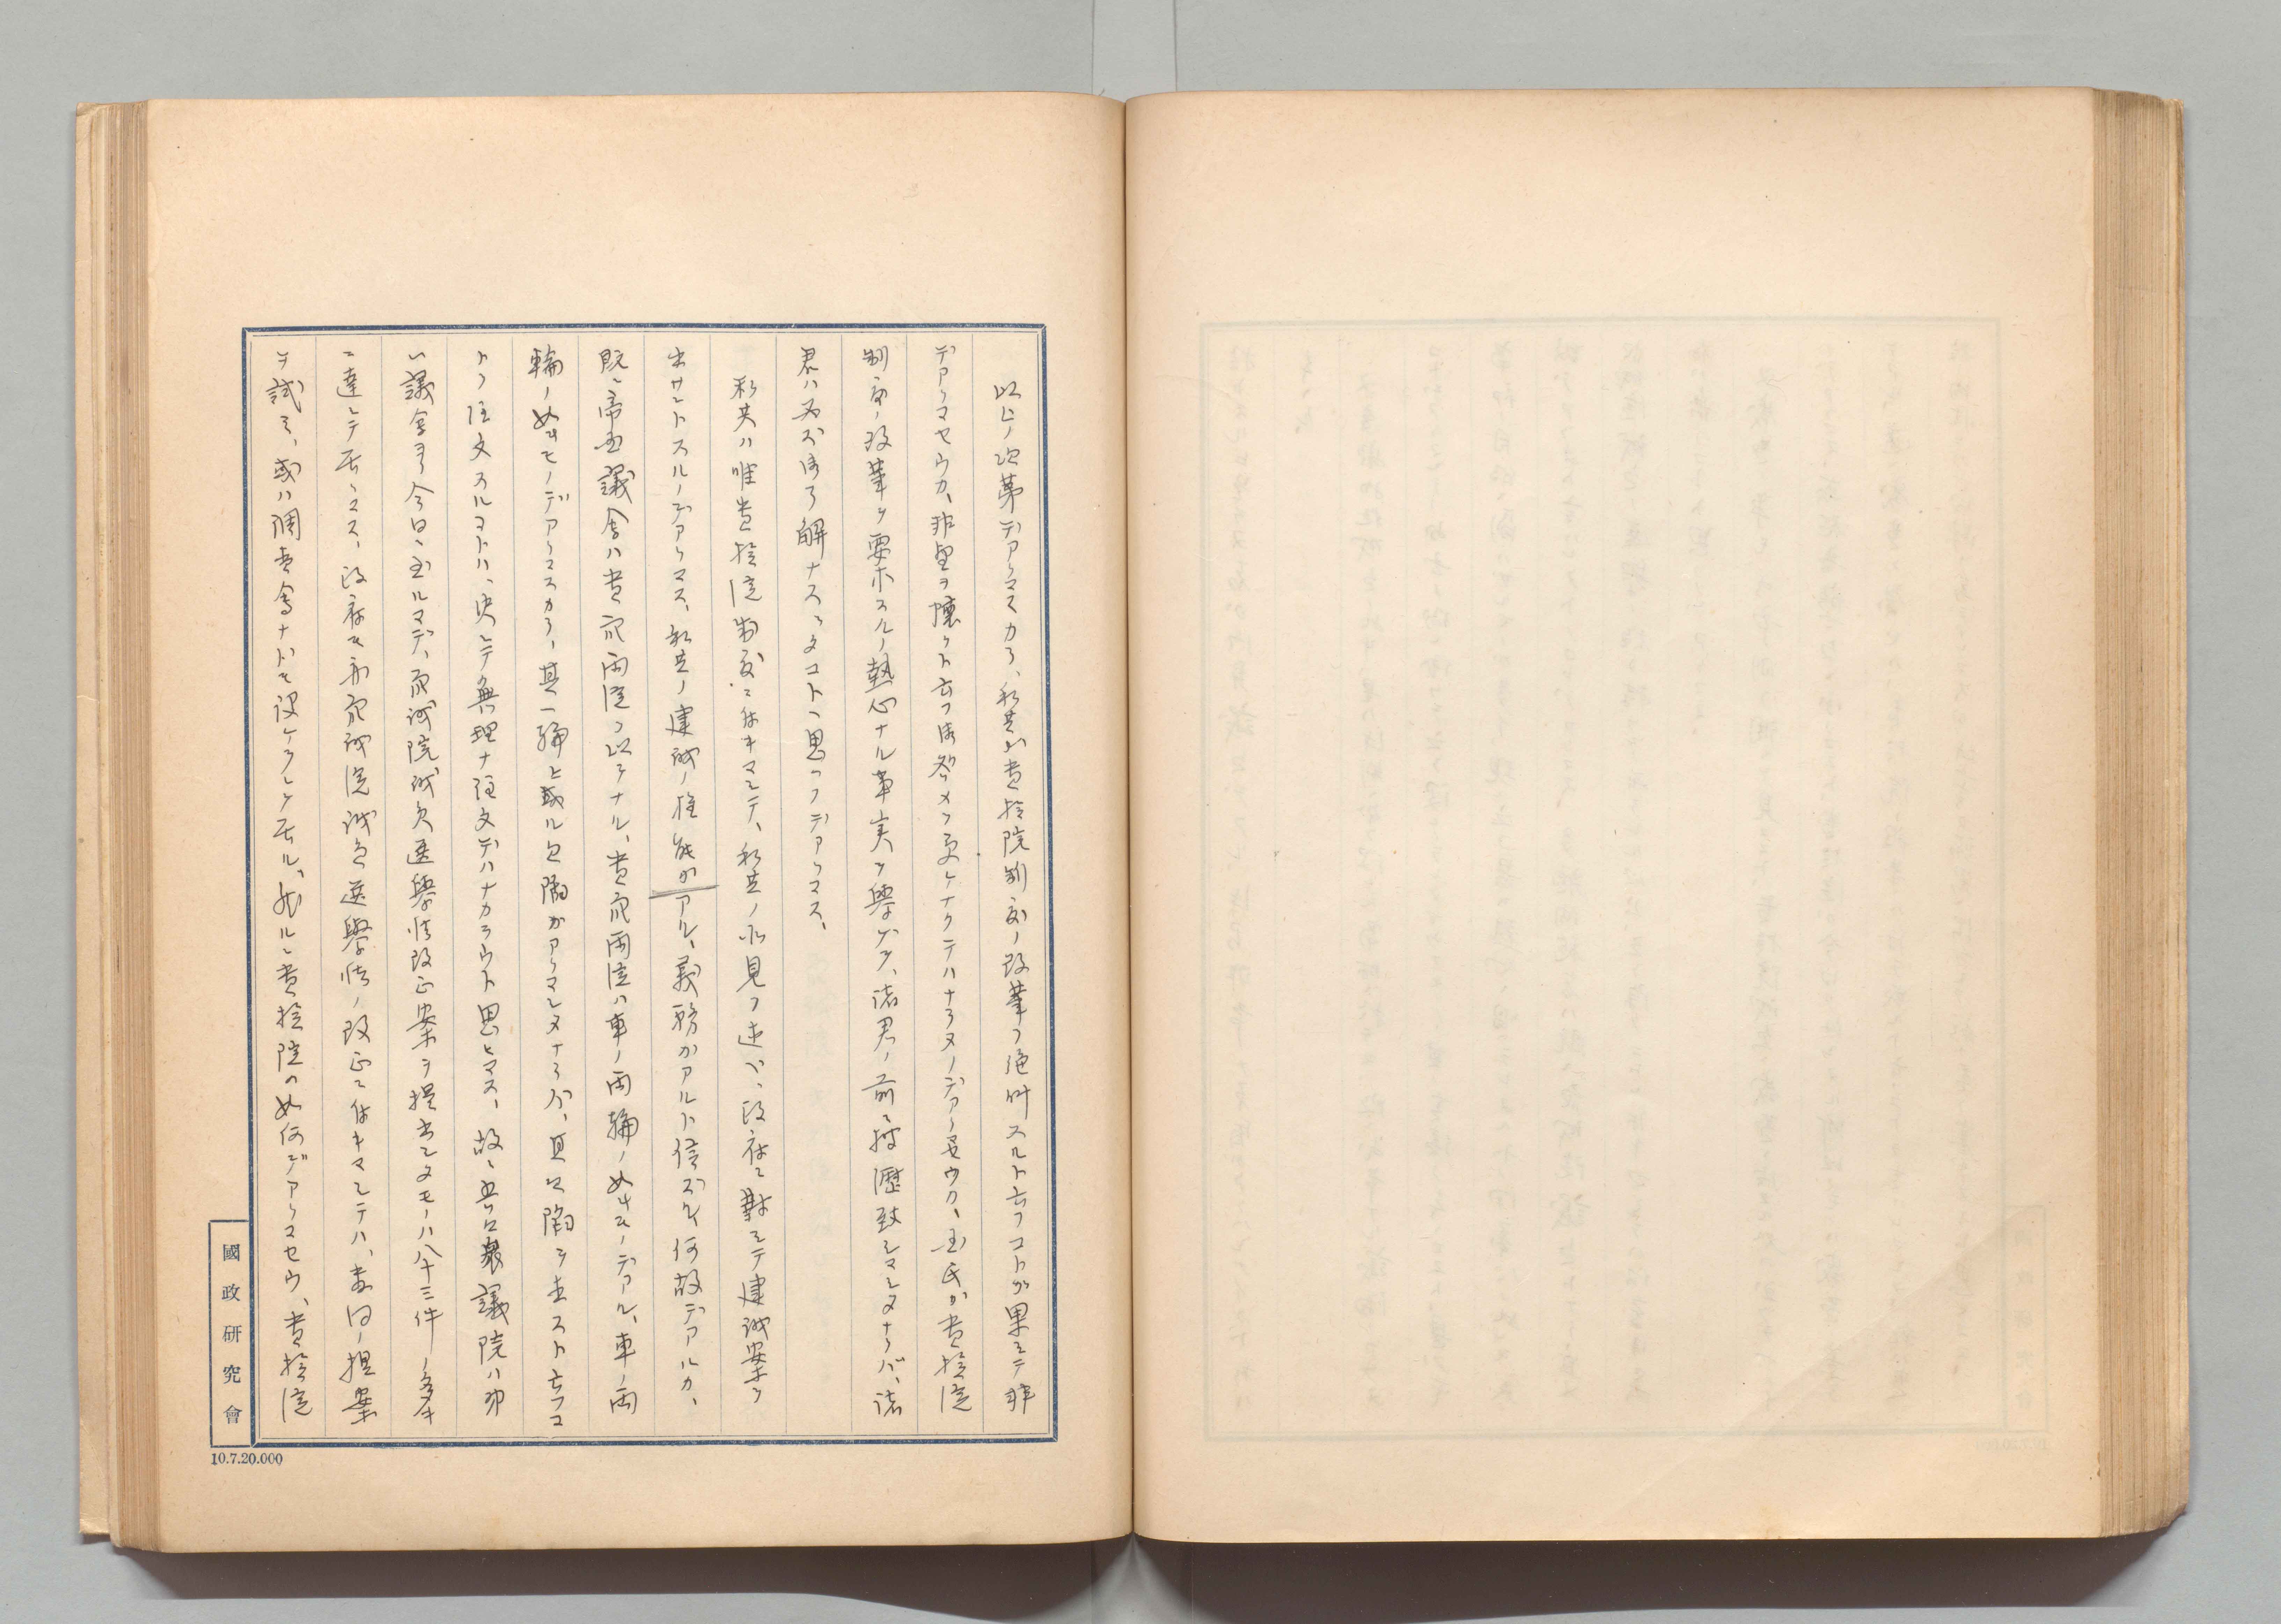 以上ノ次第デアリマスカラ、私共ガ貴族院制度ノ改革ヲ絶叫スルト云フコトガ果シテ非
デアリマセウカ、非望ヲ懐クト云フ御咎メヲ受ケナクテハナラヌノデアリマセウカ、国民ガ貴族院
制度ノ改革ヲ要求スルノ熱心ナル事実ヲ挙ゲテ、諸君ノ前ニ披瀝致シマシタナラバ、諸
君ハ解ナスッタコトヽ思フノデアリマス、
私共ハ唯貴族院制度ニ付キマシテ、私共ノ所見ヲ述ベ、政府ニ対シテ建議案ヲ
出サントスルノデアリマス、私共ノ建議ノ権能ガアル、義務ガアルト信ズル、何故デアルカ、
既ニ帝国議会ハ貴衆両院ヲ以テナル、貴衆両院ハ車ノ両輪ノ如キモノデアル、車ノ両
輪ノ如キモノデアリマスカラ、其一輪ニ或ル欠陥ガアリマシタナラバ、其欠陥ヲ直スト云フコ
トヲ注文スルコトハ、決シテ無理ナ注文デハナカラウト思ヒマス、故ニ吾ガ衆議院ハ初
メ議会ヨリ今日ニ至ルマデ、衆議院議員選挙法改正案ヲ提出シタモノハ八十三件ノ多キ
ニ達シテ居リマス、政府モ亦衆議院議員選挙法ノ改正ニ付キマシテハ、数回ノ提案
ヲ試ミ、或ハ調査会ナドモ設ケラレテ居ル、然ルニ貴族院ハ如何デアリマセウ、貴族院
國政研究會
10.7.20.000